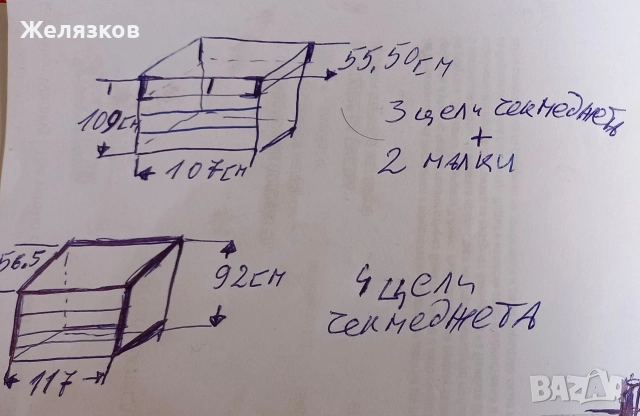 Желязков
55,50см
109см
3 цели чекмеджета
+
2 малки
107см
56.5
92см
4 цели
чекмеджета
117
BAZAR